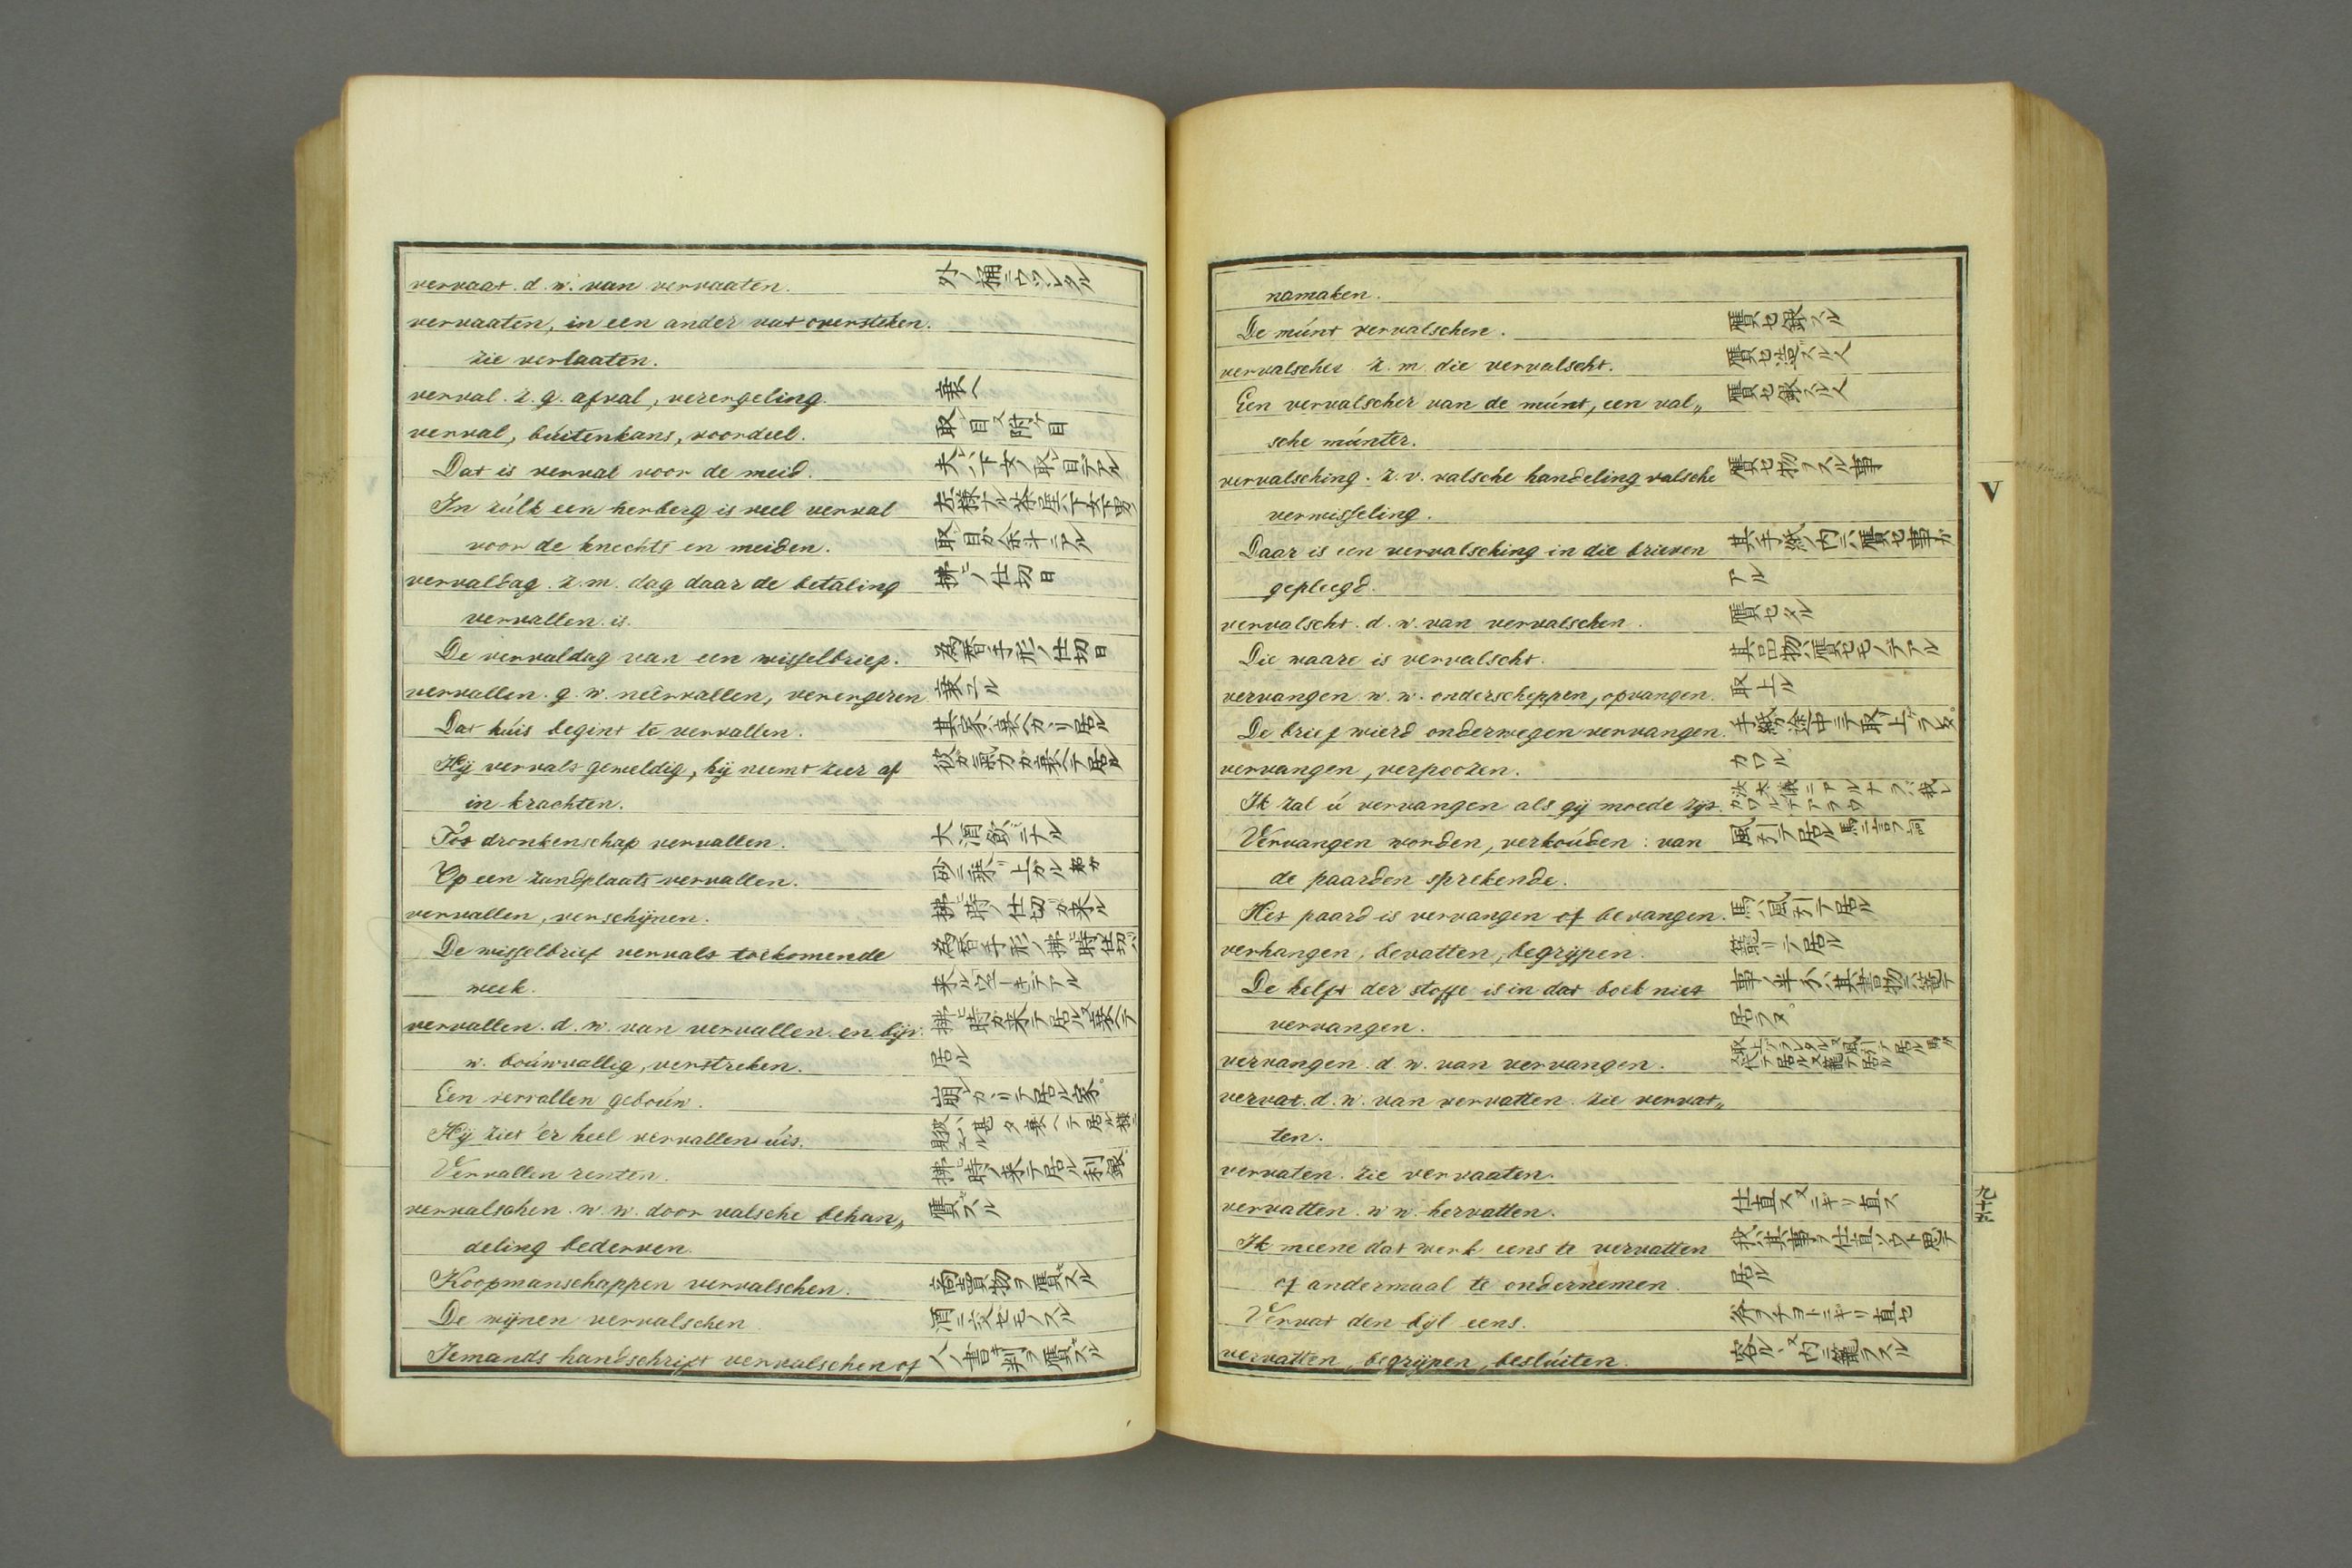 vervaat. d. w. van vervaaten. 外ノ桶ニウツシタル
vervaaten, in een ander vat oversteken.
zie verlaaten.
verval. z. g. afval, verergeling. 衰ヘ
verval, búitenkans, voordeel. 取リ目又附ケ目
Dat is verval voor de meid. 夫ハ下女ノ取リ目デアル
In zúlk een herberg is veel verval 左様ナル茶屋ハ下女下男ノ
voor de knechts en meiden. 取リ目ガ余斗ニアル
vervaldag. z. m. dag daar de betaling 拂ヒノ仕切日
vervallen is.
De vervaldag van een wisselbrief. 為替手形ノ仕切日
vervallen. g. w. neêrvallen, verergeren 衰ニル
Dat húis begint te vervallen. 其家ハ衰ヘカヽリ居ル
Hij vervalt geweldig, hij neemt zeer af 彼ガ氣力ガ衰ヘテ居ル
in krachten.
Tot dronkenschap vervallen. 大酒飲ミニナル
Op een zandplaats vervallen. 砂ニ乗リ上ガル
vervallen, verschijnen. 拂ヒ時ノ仕切ガ来ル
De wisselbrief vervalt toekomende 為替手形ノ拂ヒ時ノ仕切ハ
week. 来ルウェーキデアル
vervallen. d. w. van vervallen. en bijv. 拂ヒ時ガ来テ居ル又衰ヘテ
w. boúwvallig, verstreken. 居ル
Een vervallen geboúw. 崩レカヽリテ居ル家
Hij ziet 'er heel vervallen úit. 彼ハ甚タ衰ヘテ居ル様ニ見ル
Vervallen renten. 拂ヒ時ノ来テ居ル利銀
vervalschen. w. w. door valsche behan„ 贋ズル
deling bederven.
Koopmanschappen vervalschen. 商賣物ヲ贋ズル
De wijnen vervalschen. 酒ニ交セモノスル
Iemands handschrift vervalschen of 人ノ書判ヲ贋ズル
namaken.
De múnt vervalschen. 贋セ銀スル
vervalscher z. m. die vervalscht. 贋セ造ズル人
Een vervalscher van de múnt, een val„ 贋セ銀スル人
sche múnter.
vervalsching. z. v. valsche handeling valsche 贋セ物ヲスル事
verwisseling.
Daar is een vervalsching in die brieven 其手紙ノ内ニハ贋セ事ガ
gepleegd. アル
vervalscht. d. w. van vervalschen. 贋セタル
Die waare is vervalscht. 其品物ハ贋セモノデアル
vervangen. w. w. onderscheppen, opvangen. 取上ル
De brief wierd onderwegen vervangen. 手紙ガ途中ニテ取リ上ゲラレタ
vervangen, verpoozen. カワル
Ik zal ú vervangen als gij moede zijt. 汝大儀ニアルナラバ我レカワルデアラウ
Vervangen worden, verkoúden: van 風ヲ引テ居ル 馬ニ言フ詞
de paarden sprekende.
Het paard is vervangen of bevangen. 馬ハ風ヲ引テ居ル
verhangen, bevatten, begrijpen. 籠リテ居ル
De helft der stoffe is in dat boek niet 事ノ半分ハ其書物ニ籠テ
vervangen. 居ラヌ
vervangen. d. w. van vervangen.
vervat. d. w. van vervatten. zie vervat„
ten.
vervaten. zie vervaaten.
vervatten. w. w. hervatten. 仕直ス又ニギリ直ス
Ik meene dat werk eens te vervatten 我ハ其事ヲ仕直ソウト思テ
of andermaal te ondernemen. 居ル
Vervat den bijl eens. 斧ヲチヨトニギリ直セ
vervatten, begrijpen, beslúiten. 容ルヽ又内ニ籠ラスル
V
九十五